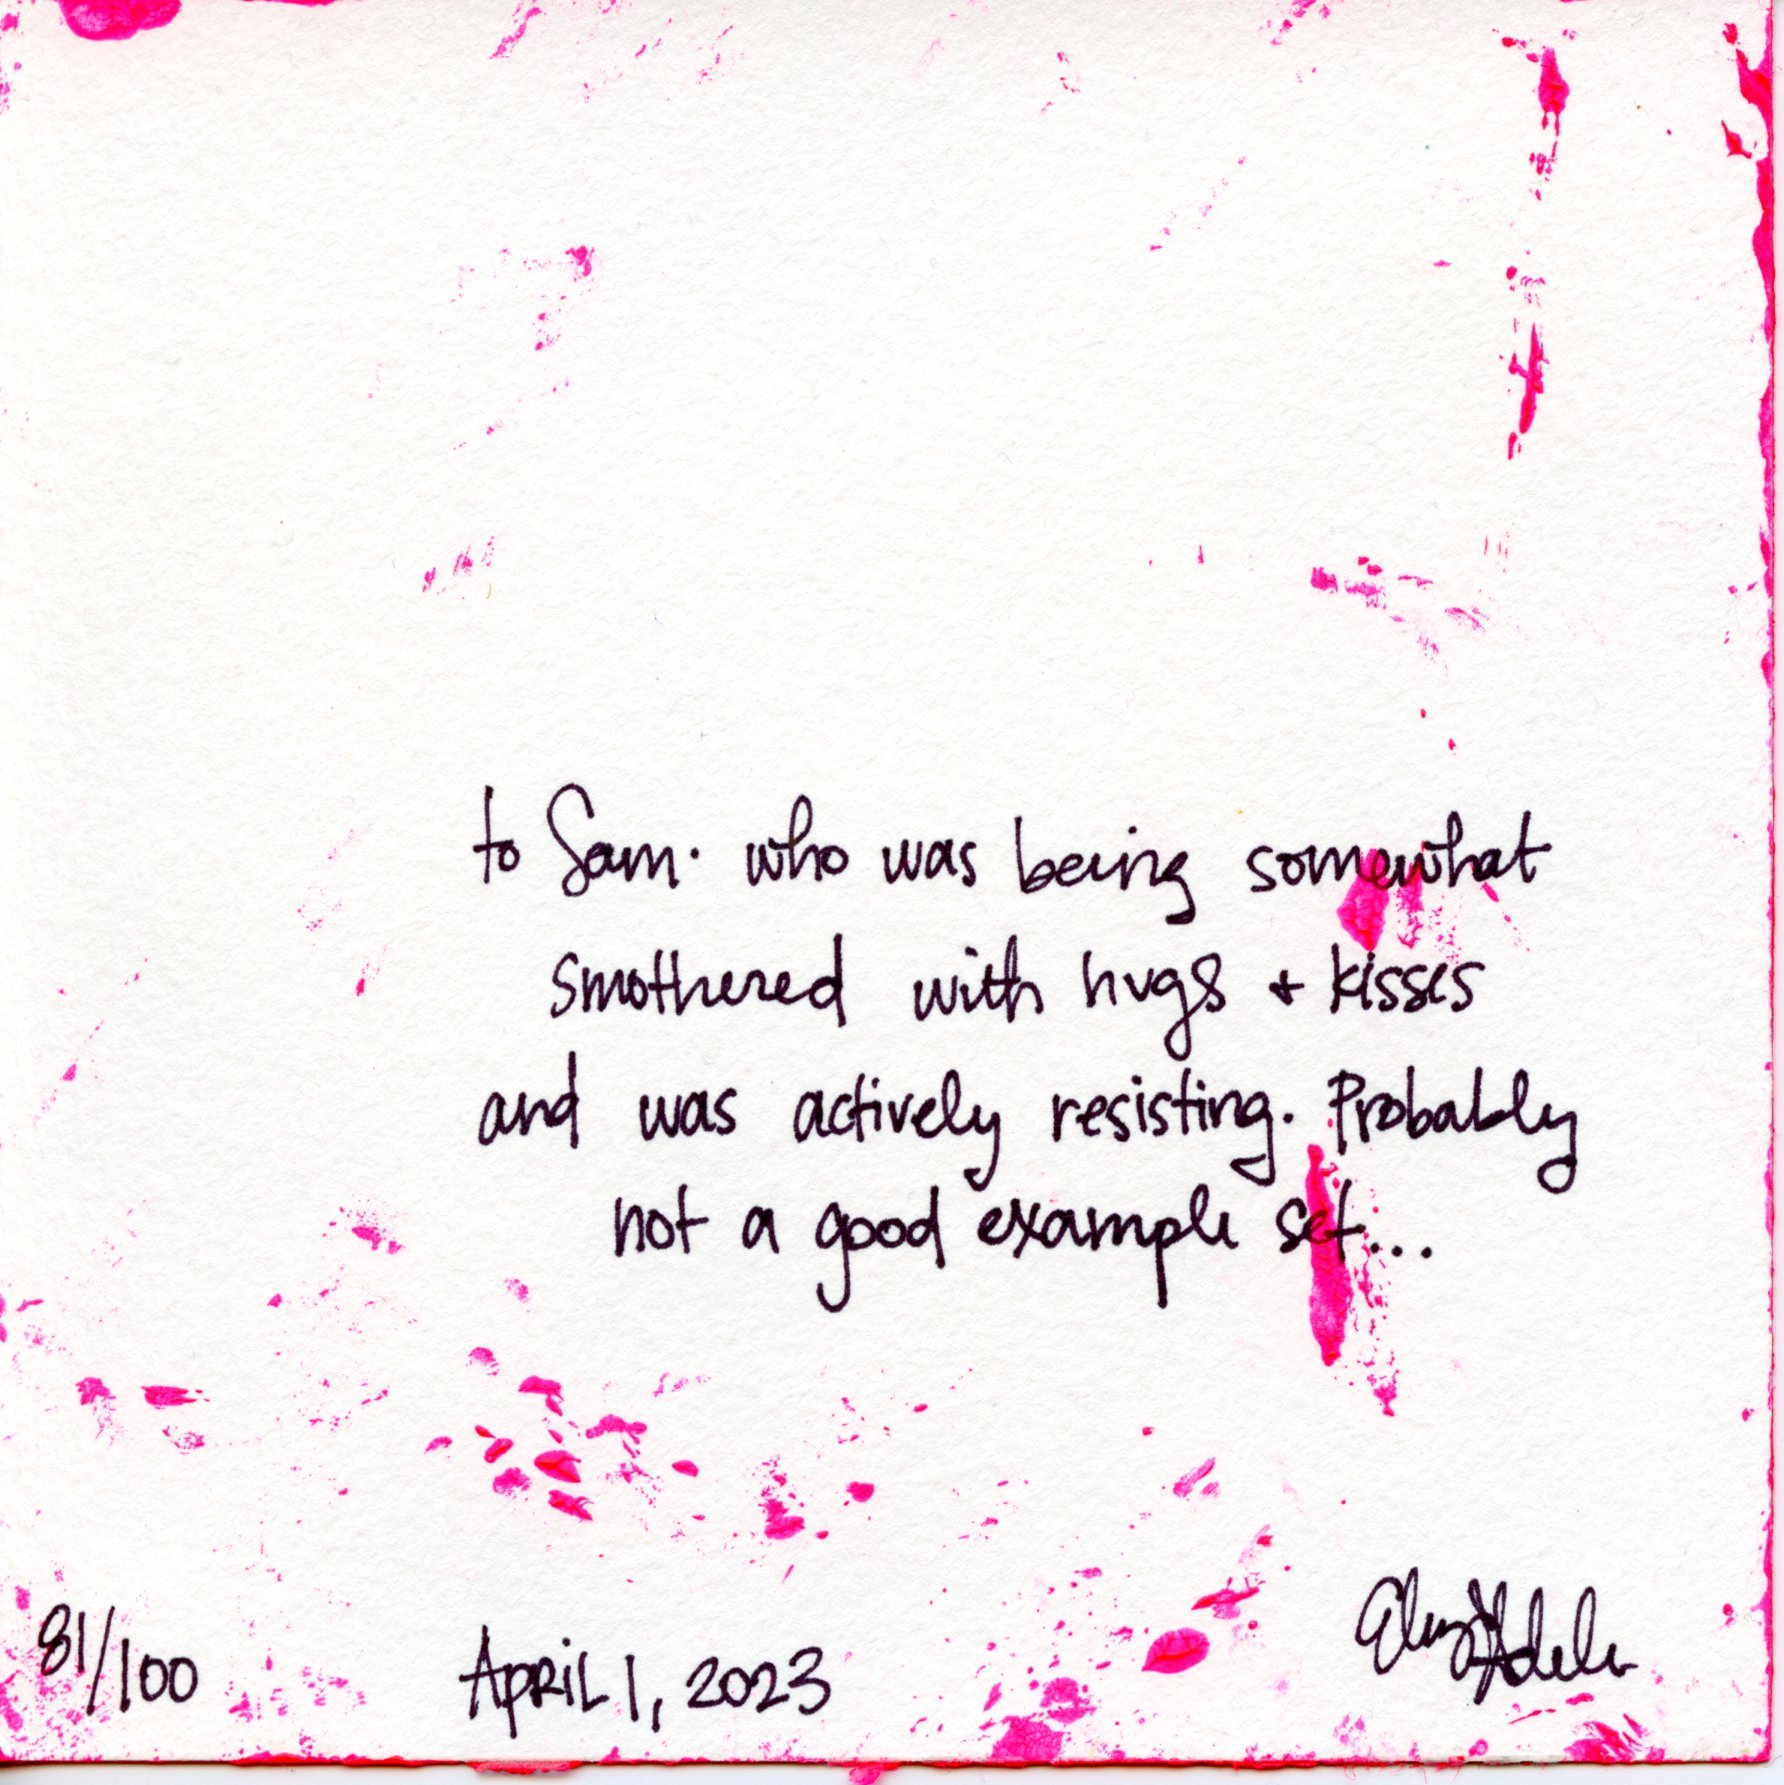 to Sam. who was being somewhat
smothered with hugs + kisses
and was actively resisting. Probably
not a good example set...
81/100 APRIL 1, 2023